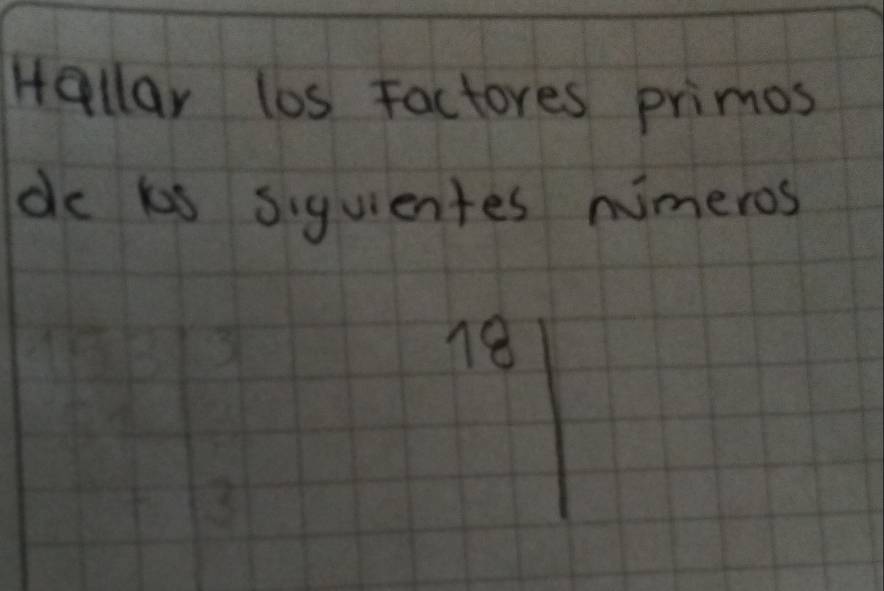 Hallar los Factores primos
de los siguientes números
18